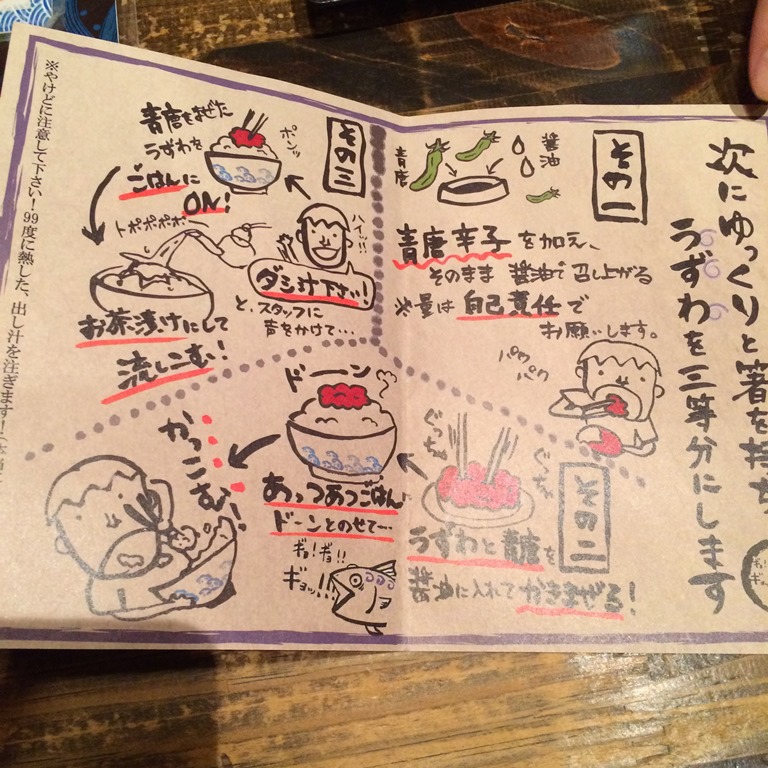 次にゆっくりと箸を持ち
うずわを三等分にします
その一
醤油
青唐
青唐辛子を加え、
そのまま醤油で召し上がる
※量は自己責任で
お願いします。
パク
パク
その二
ぐっちゃ
ぐっちゃ
うずわと青唐を
醤油に入れてかきまぜる!
ドーン
あっつあつごはん
ドーンとのせて…
かっこむ!
ギョ!ギョ!!
ギョッ!!
その三
青唐をまぜた
うずわを
ポンッ
ごはんに
ON!
ハイ!!!
ダシ汁下さい!
と、スタッフに
声をかけて…
トポポポポ
お茶漬けにして
流しこむ!
※やけどに注意して下さい!99度に熱した、出し汁を注ぎます!